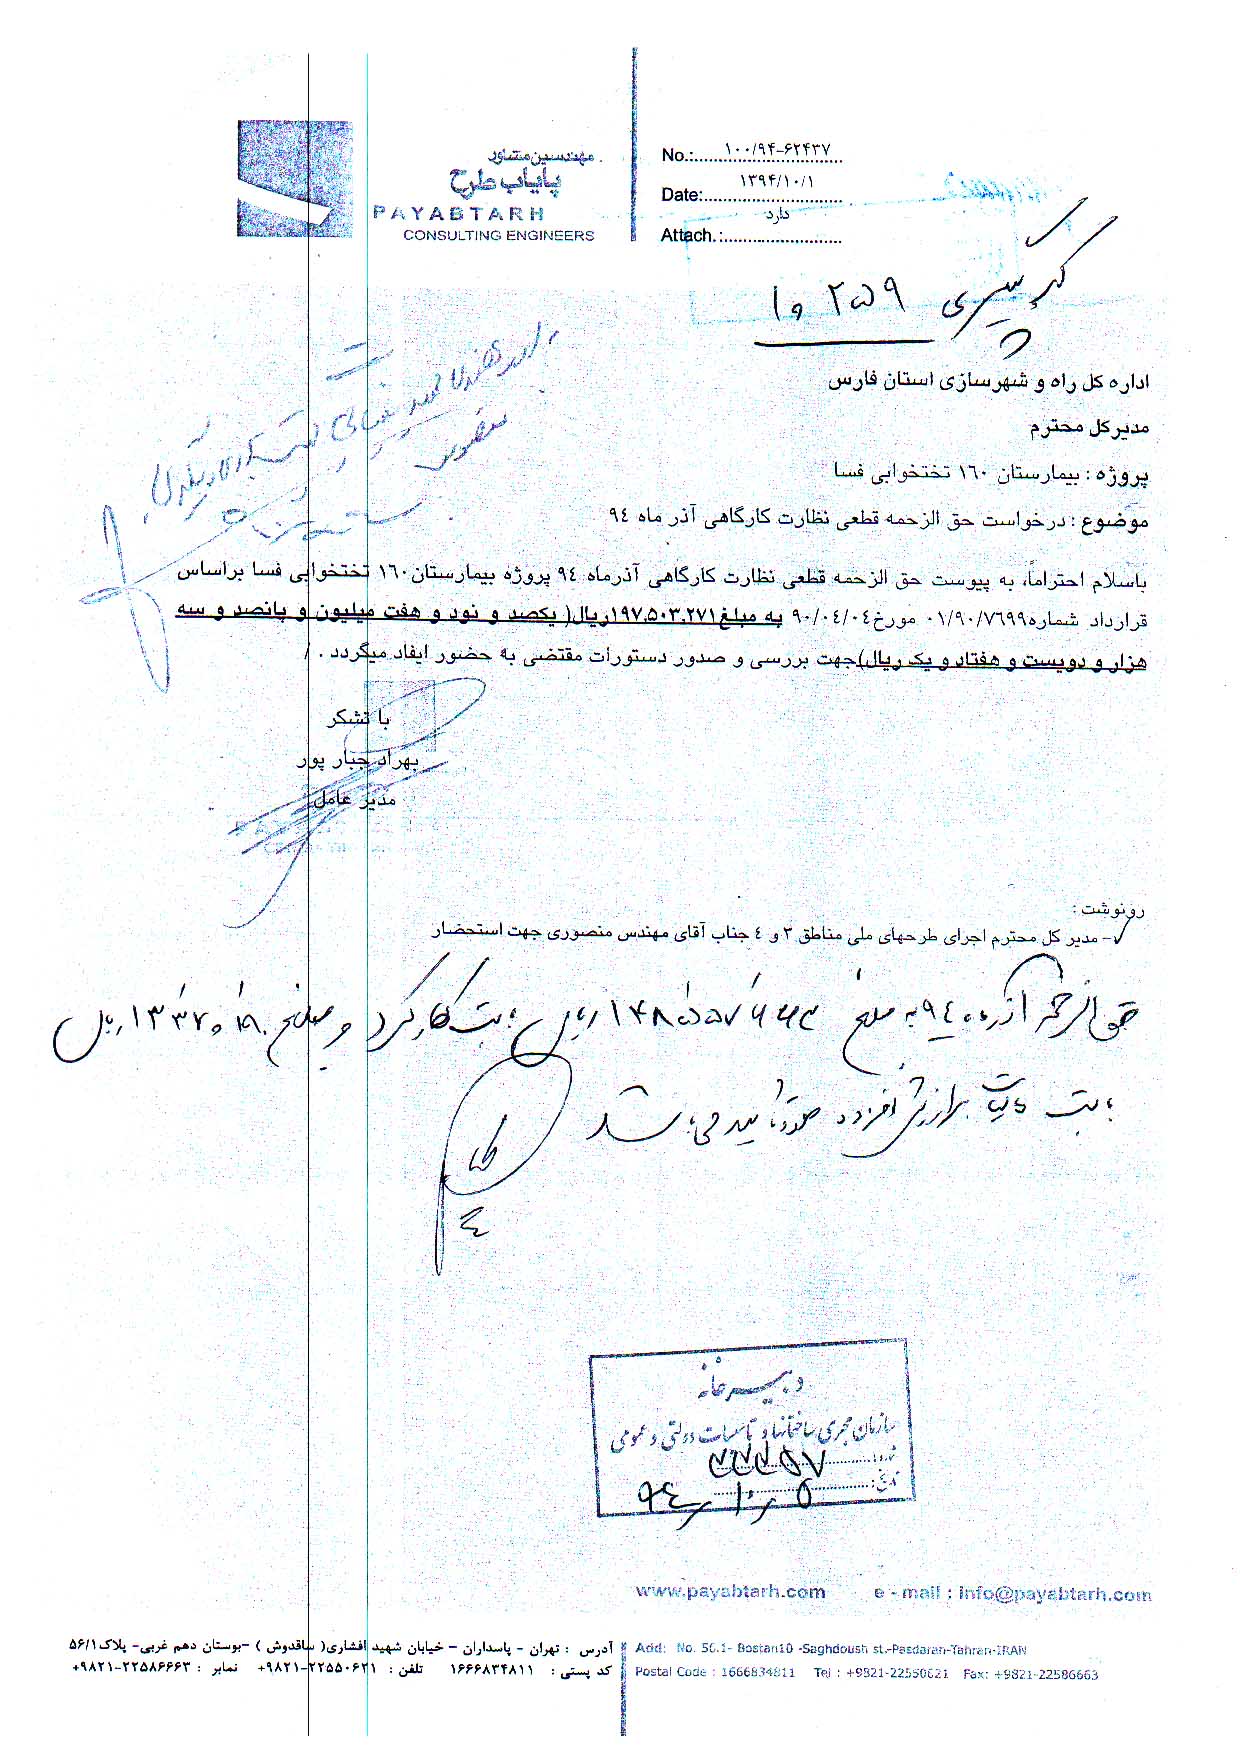 مهندسین مشاور
پایاب طرح
PAYABTARH
CONSULTING ENGINEERS
No.: ۱۰۰/۹۴-۶۲۴۳۷
Date: ۱۳۹۴/۱۰/۱
Attach.: دارد
اداره کل راه و شهرسازی استان فارس
مدیرکل محترم
پروژه : بیمارستان ۱۶۰ تختخوابی فسا
موضوع : درخواست حق الزحمه قطعی نظارت کارگاهی آذر ماه ۹٤
باسلام احتراماً، به پیوست حق الزحمه قطعی نظارت کارگاهی آذرماه ۹٤ پروژه بیمارستان۱۶۰ تختخوابی فسا براساس
قرارداد شماره۰۱/۹۰/۷۶۹۹ مورخ۹۰/۰٤/۰٤ به مبلغ۱۹۷.۵۰۳.۲۷۱ریال( یکصد و نود و هفت میلیون و پانصد و سه
هزار و دویست و هفتاد و یک ریال)جهت بررسی و صدور دستورات مقتضی به حضور ایفاد میگردد . /
با تشکر
بهراد جبار پور
مدیر عامل
رونوشت :
- مدیر کل محترم اجرای طرحهای ملی مناطق ۳ و ٤ جناب آقای مهندس منصوری جهت استحضار
حق الزحمه آذرماه ۹٤ به مبلغ ریال بابت کارکرد و مبلغ ریال
بابت مالیات بر ارزش افزوده مورد تایید می باشد
دبیرخانه
سازمان مجری ساختمانها و تاسیسات دولتی و عمومی
شماره:
تاریخ: ۹٤/۱۰/۵
www.payabtarh.com e - mail : info@payabtarh.com
آدرس : تهران - پاسداران - خیابان شهید افشاری( ساقدوش ) -بوستان دهم غربی- پلاک۵۶/۱
کد پستی : ۱۶۶۶۸۳۴۸۱۱ تلفن : ۲۲۵۵۰۶۲۱-۹۸۲۱+ نمابر : ۲۲۵۸۶۶۶۳-۹۸۲۱+
Add: No. 56.1- Bostan10 -Saghdoush st.-Pasdaran-Tehran-IRAN
Postal Code : 1666834811 Tel : +9821-22550621 Fax: +9821-22586663